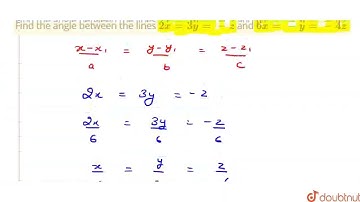 Find the angle between the lines 2x = 3y = − z and 6x = − y = − 4z
x-x₁ = y-y₁ = z-z₁
a b c
2x = 3y = -z
2x = 3y = -z
6 6 6
x = y = z
doubtnut